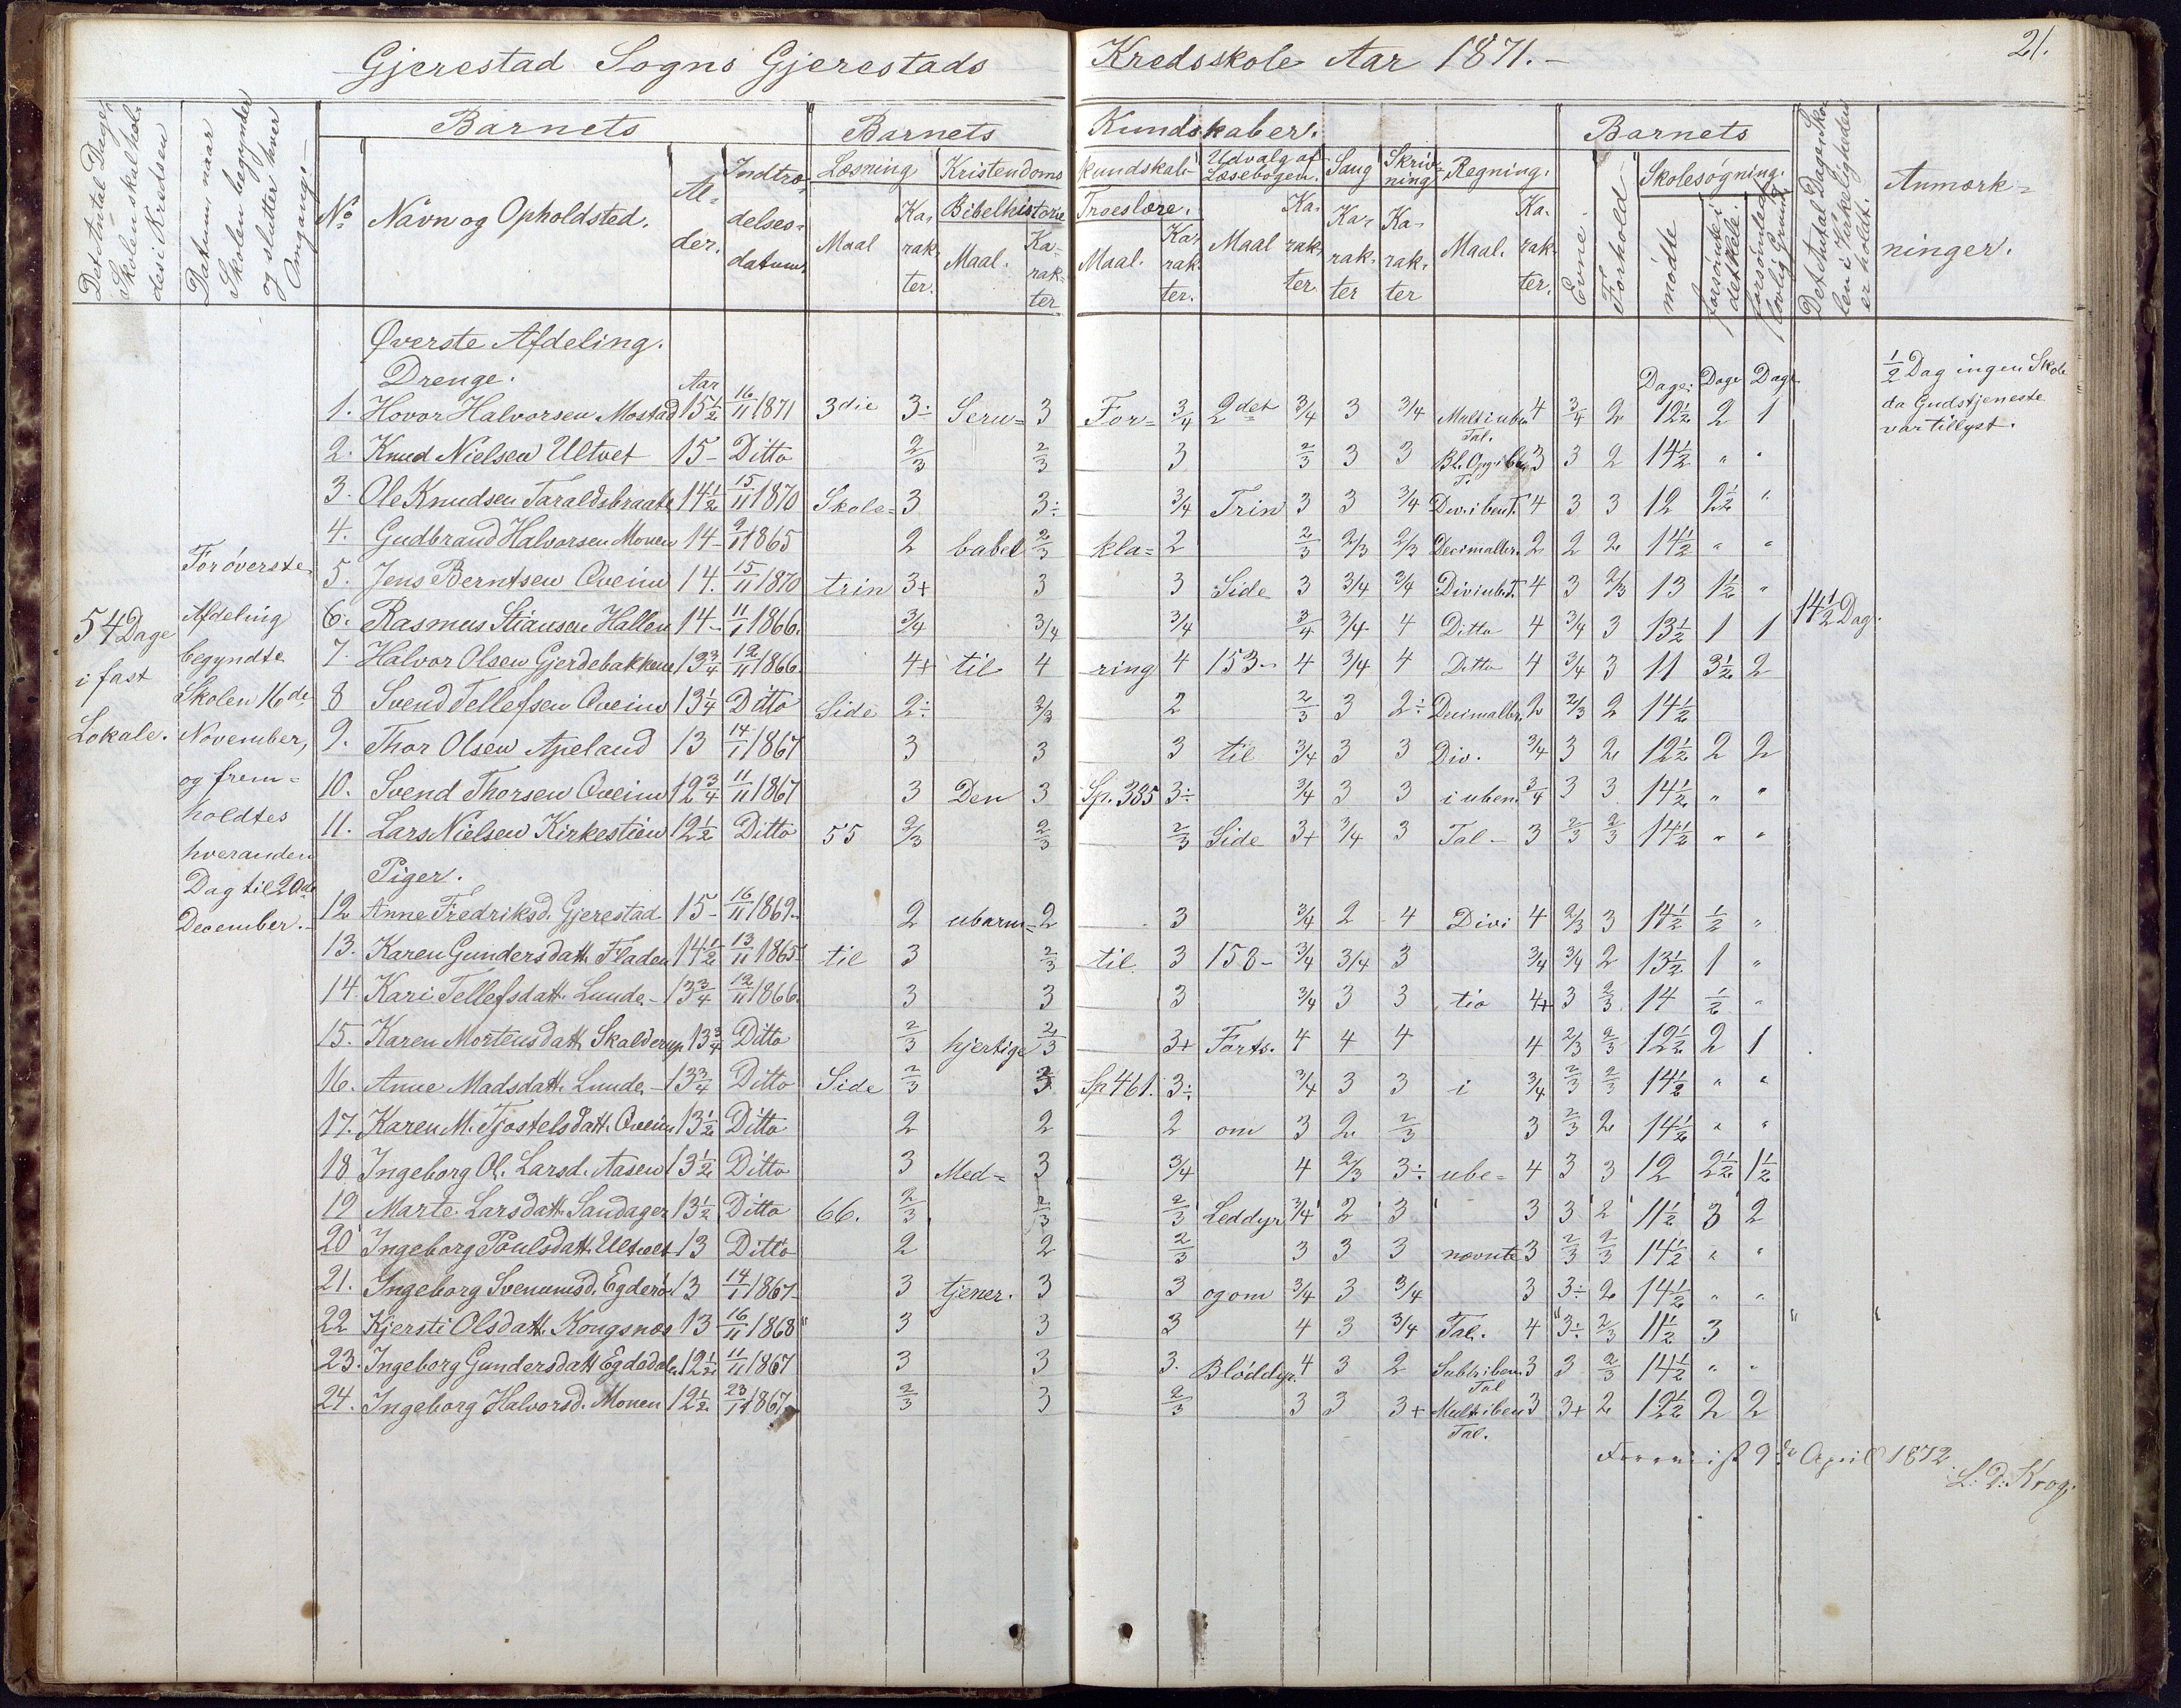 Gjerestad Sogns Gjerestads Kredsskole Aar 1871.-
21.
Det Antal Dage Skolen skal holdes i Kredsen
Datum, naar Skolen begynder og slutter hver Omgang.-
Barnets
No
Navn og Opholdsted.
Alder.
Indtrædelsesdatum.
Barnets Kundskaber.
Læsning
Maal
Karakter.
Kristendomskundskab
Bibelhistorie
Maal.
Karakter
Troeslære.
Maal.
Karakter.
Udvalg af Læsebogen.
Maal
Karakter
Sang
Karakter
Skrivning
Karakter
Regning.
Maal.
Karakter.
Barnets
Evne.
Forhold
Skolesøgning.
mødte
forsømte i det Hele.
forsømte af lovlig Grund
Det Antal Dage Skolen i Virkeligheden er holdt.
Anmærkninger.
54 Dage
i fast
Lokale.
For øverste
Afdeling
begyndte
Skolen 16de
November,
og frem=
holdtes
hveranden
Dag til 20de
December.-
Øverste Afdeling.
Drenge.
Aar
Dage. Dage Dage
1. Hovor Halvorsen Mostad 15½ 16/11 1871 3die 3÷ Seru= 3 For= 3/4 2det 3/4 3 3/4 Multi ube. Tal. 4 3/4 2 12½ 2 1
2. Knud Nielsen Ultvet 15- Ditto 2/3 2/3 3 2/3 3 3 3 3 2 14½ " "
3. Ole Knudsen Taraldsbraate 14½ 15/11 1870 Skole= 3 3÷ 3/4 Trin 3 3 3/4 Div. i ben T. 4 3 3 12 2½ "
4. Gudbrand Halvorsen Monen 14- 9/11 1865 2 babel 2/3 kla= 2 2/3 2/3 2/3 Decimalbr. 2 2 2 14½ " "
5. Jens Berntsen Qveim 14. 15/11 1870 trin 3+ 3 3 Side 3 3/4 3/4 Divi ub. T. 4 3 2/3 13 1½ "
6. Rasmus Stiansen Hallen 14- 11/1 1866. 3/4 3/4 3/4 3/4 3/4 4 Ditto 4 3/4 3 13½ 1 1 14½ Dag.
7. Halvor Olsen Gjerdebakkene 13¾ 12/11 1866. 4+ til 4 ring 4 153- 4 3/4 4 Ditto 4 3/4 3 11 3½ 2
8 Svend Tellefsen Qveim 13¼ Ditto Side 2÷ 2/3 2 2/3 3 2÷ Decimalbr. 2 2/3 2 14½
9. Thor Olsen Apeland 13 14/1 1867 3 3 3 til 3/4 3 3 Div. 3/4 3 2 12½ 2 2
10. Svend Thorsen Qveim 12¾ 11/11 1867 3 Den 3 Sp. 335 3÷ 3/4 3 3 i uben. 3/4 3 3 14½ " "
11. Lars Nielsen Kirkestien 12½ Ditto 55 2/3 2/3 2/3 Side 3+ 3/4 3 Tal- 3 2/3 2/3 14½ " "
Piger.
12 Anne Fredriksd. Gjerestad 15- 16/11 1869. 2 ubarm= 2 3 3/4 2 4 Divi 4 2/3 3 14½ ½ "
13. Karen Gundersdatt. Fladen 14½ 13/11 1865 til 3 2/3 til 3 158- 3/4 3/4 3 3/4 3/4 2 13½ 1 "
14. Kari Tellefsdatt. Lunde- 13¾ 12/11 1866. 3 3 3 3/4 3 3 tio 4+ 3 2/3 14 ½ "
15. Karen Mortensdatt. Skalderup 13¾ Ditto 2/3 hjertige 2/3 3+ Forts. 4 4 4 4 2/3 2/3 12½ 2 1
16. Anne Madsdatt. Lunde- 13¾ Ditto Side 2/3 3 Sp. 461. 3÷ 3/4 3 3 i 3/4 2/3 2/3 14½ " "
17. Karen M. Tjostelsdatt. Qveim 13½ Ditto 2 2 2 om 3 2 2/3 3 2/3 2 14½ " "
18 Ingeborg Ol. Larsd. Aasen 13½ Ditto 3 Med= 3 3/4 4 2/3 3÷ ube= 4 3 3 12 2½ 1½
19 Marte Larsdatt. Sandager 13½ Ditto 66. 2/3 2/3 2/3 Leddyr 3/4 2 3 3 3 2 11½ 3 2
20 Ingeborg Poulsdatt. Ultvet 13 Ditto 2 2 2/3 3 3 3 nævnte 3 2/3 2/3 14½ " "
21. Ingeborg Svenumsd. Egderö 13 14/1 1867 3 tjener. 3 3 og om 3/4 3 3/4 3 3÷ 2 14½ " "
22 Kjersti Olsdatt. Kongsnæs 13 16/11 1868 3 3 3 4 3 3/4 Tal. 4 3÷ 2/3 11½ 3
23. Ingeborg Gundersdatt Egdedalen 12½ 11/11 1867 3 3 3. Bløddyr. 4 3 2 Subt. i ben. Tal 3 3 2/3 14½ " "
24. Ingeborg Halvorsd. Monen 12½ 23/11 1867 2/3 3 2/3 3 3 3+ Mult. i ben Tal. 3 3+ 2 12½ 2 2
½ Dag ingen Skole
da Gudstjeneste
var tillyst.
9de April 1872.
L. D. Krog.